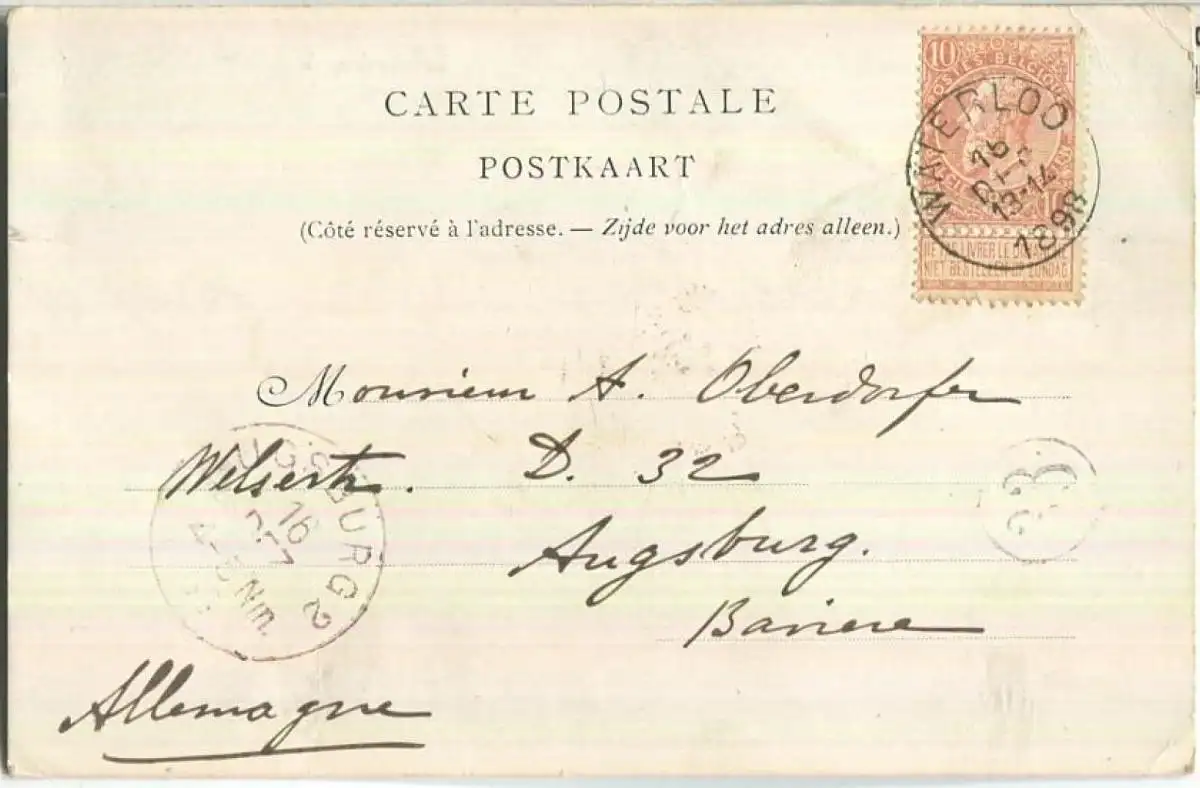 CARTE POSTALE
POSTKAART
(Côté réservé à l'adresse. — Zijde voor het adres alleen.)
10
POSTES BELGIQUE
WATERLOO
16
13-14
1898
NE PAS LIVRER LE DIMANCHE
NIET BESTELLEN OP ZONDAG
Monsieur A. Oberdorfer
Welserstr. D. 32
Augsburg.
Baviere
Allemagne
AUGSBURG 2
Nm.
23